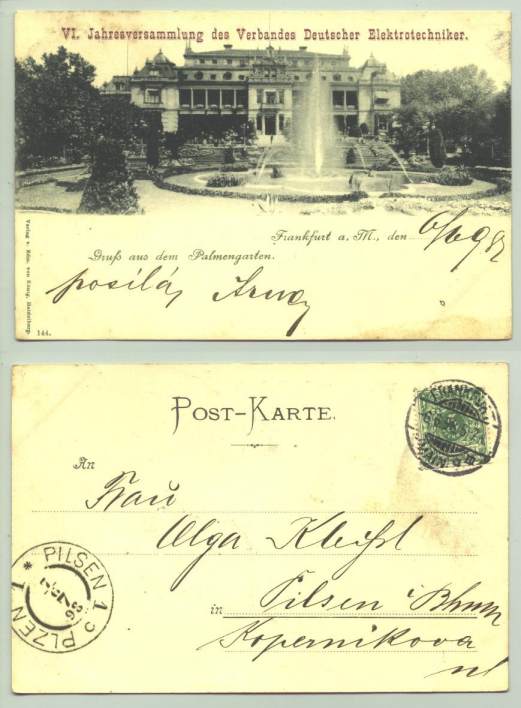 VI. Jahresversammlung des Verbandes Deutscher Elektrotechniker.
Frankfurt a. M., den 6/6 98
Gruß aus dem Palmengarten.
posílá
Verlag v. Edm. von König, Heidelberg.
144.
POST-KARTE.
FRANKFURT
An
Frau
Olga
PILSEN 1
PLZEŇ 1
in Pilsen
Kopernikova
ul